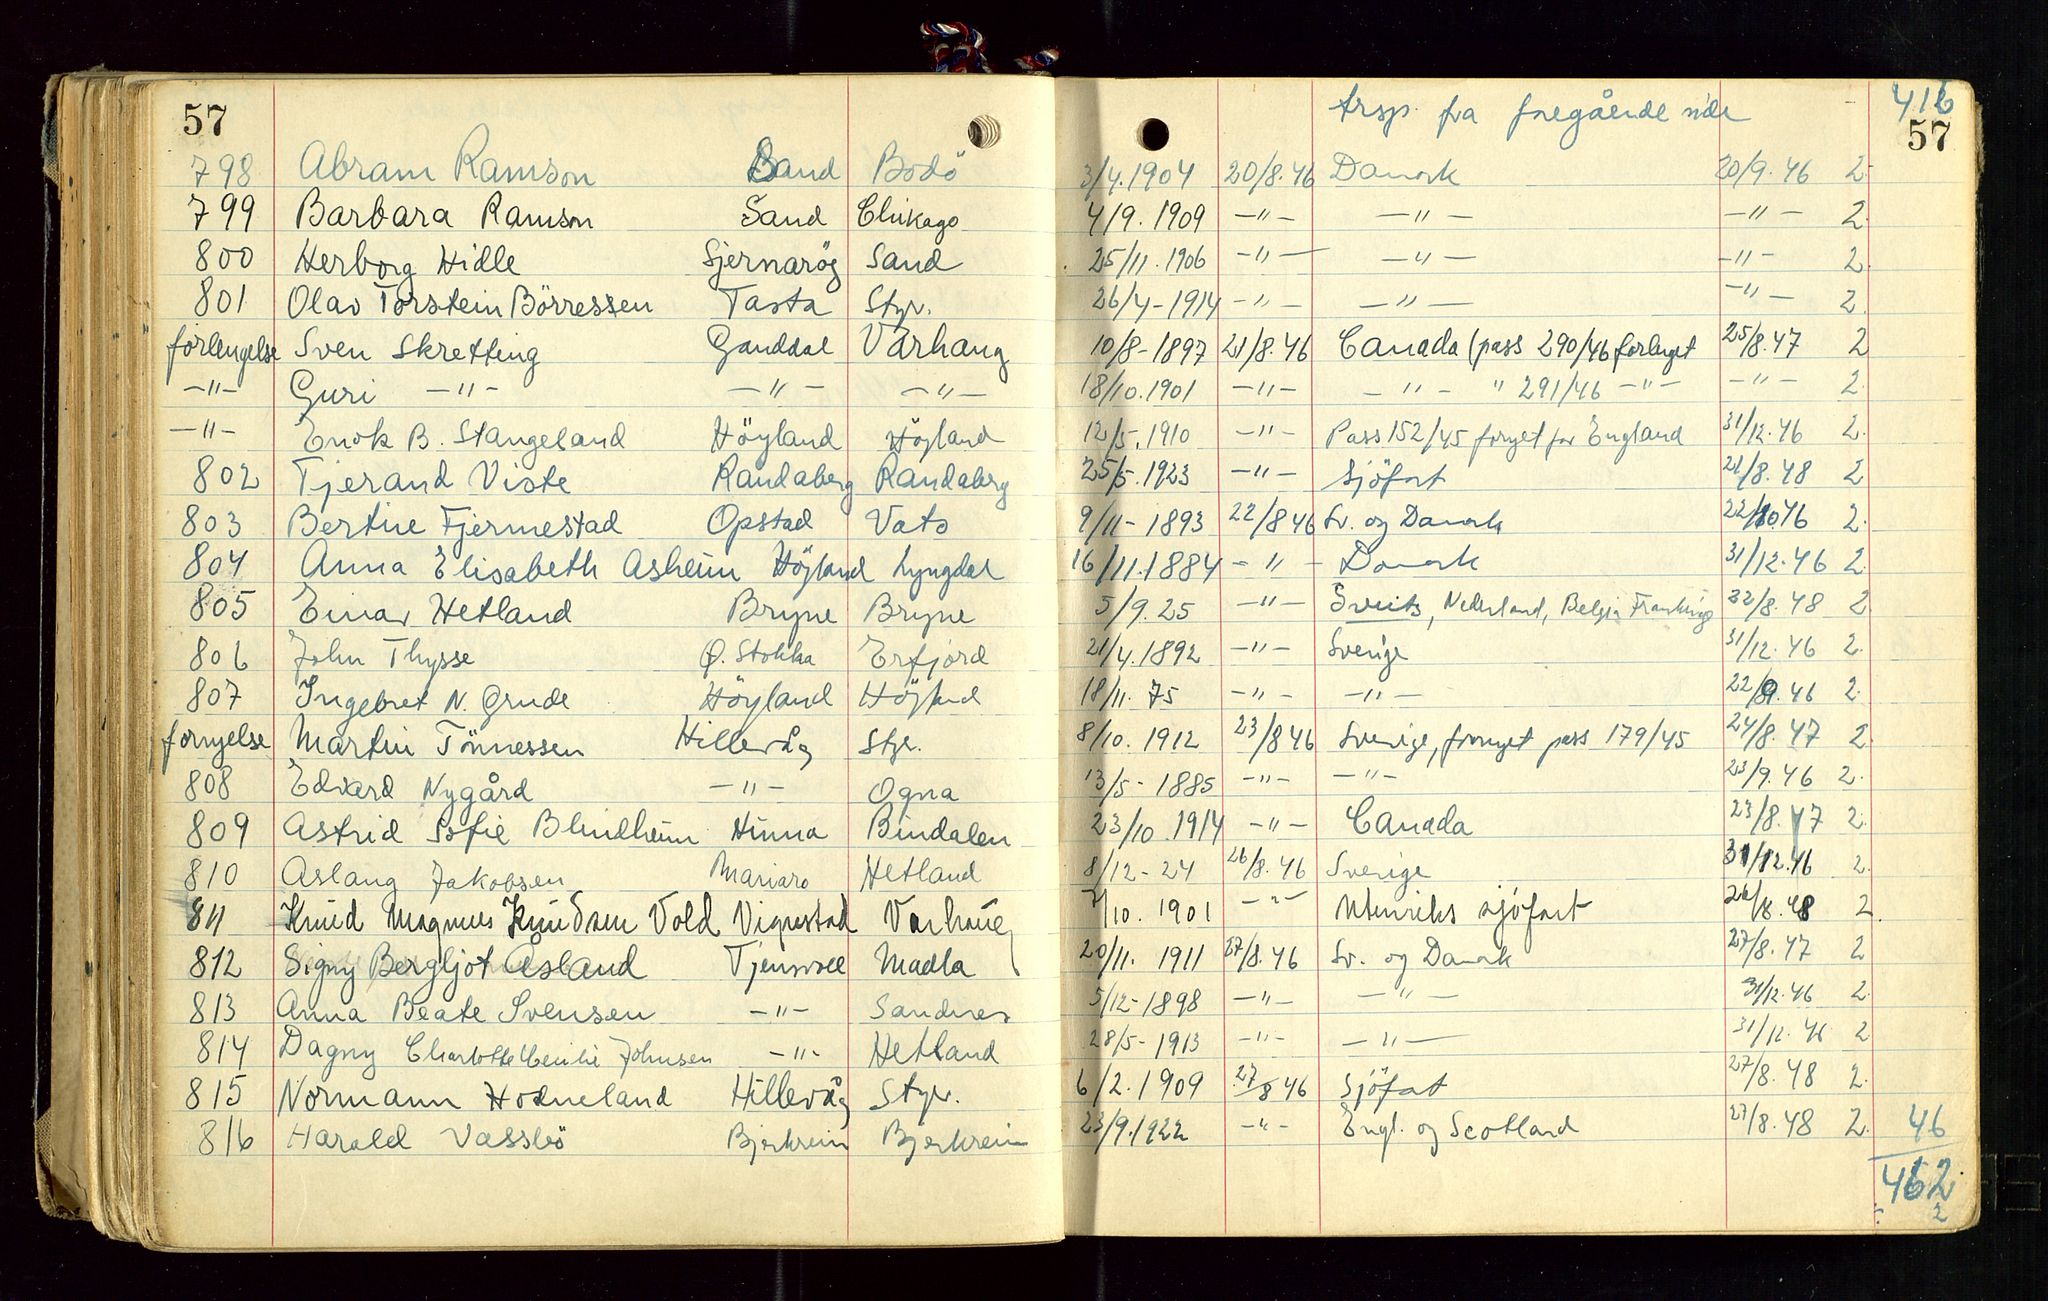 57
trsp. fra foregående side 416
57
798 Abram Ramson Sand Bodö 3/4.1904 20/8.46 Danmk 20/9.46 2
799 Barbara Ramson Sand Chikago 4/9.1909 -"- -"- -"- 2
800 Herborg Hidle Sjernaröy Sand 25/11.1906 -"- -"- -"- 2
801 Olav Torstein Börressen Tasta Styr. 26/4-1914 -"- -"- -"- 2
forlengelse Sven Skretting Ganddal Varhaug 10/8-1897 21/8.46 Canada (pass 290/46 forlenget 25/8.47 2
-"- Guri -"- -"- -"- 18/10.1901 -"- -"- " 291/46 -"- -"- 2
-"- Enok B. Stangeland Höyland Höyland 12/5.1910 -"- Pass 152/45 fornyet for England 31/12.46 2
802 Tjerand Viste Randaberg Randaberg 25/5.1923 -"- Sjöfart 21/8.48 2
803 Bertine Fjermestad Opstad Vats 9/11-1893 22/8 46 Sv. og Danmk 22/10 46 2
804 Anna Elisabeth Asheim Höyland Lyngdal 16/11.1884 -"- Danmk 31/12.46 2
805 Einar Hetland Bryne Bryne 5/9.25 -"- Sveits, Nederland, Belgia Frankrige 22/8.48 2
806 John Thysse Ø. Stokka Erfjord 21/4.1892 -"- Sverige 31/12.46 2
807 Ingebret N. Grude Höyland Höyland 18/11.75 -"- -"- 22/9.46 2
fornyelse Martin Tönnessen Hillevåg Styr. 8/10.1912 23/8 46 Sverige, fornyet pass 179/45 24/8.47 2
808 Edvard Nygård -"- Ogna 13/5-1885 -"- -"- 23/9.46 2
809 Astrid Sofie Blindheim Hinna Bindalen 23/10.1914 -"- Canada 23/8.47 2
810 Aslaug Jakobsen Mariaro Hetland 8/12-24 26/8.46 Sverige 31/12.46 2
811 Knud Magnus Knudsen Vold Vigrestad Varhaug 7/10.1901 -"- Utenriks sjöfart 26/8.48 2
812 Signy Bergljot Åsland Tjensvoll Madla 20/11.1911 27/8.46 Sv. og Danmk 27/8.47 2
813 Anna Beate Svensen -"- Sandnes 5/12-1898 -"- -"- 31/12.46 2
814 Dagny Charlotte Cecilie Johnsen -"- Hetland 28/5-1913 -"- -"- 31/12.46 2
815 Normann Hodneland Hillevåg Styr. 6/2.1909 27/8 46 Sjöfart 27/8.48 2
816 Harald Vassbö Bjerkreim Bjerkreim 23/9.1922 -"- Engl. og Scotland 27/8.48 2 46
462
2